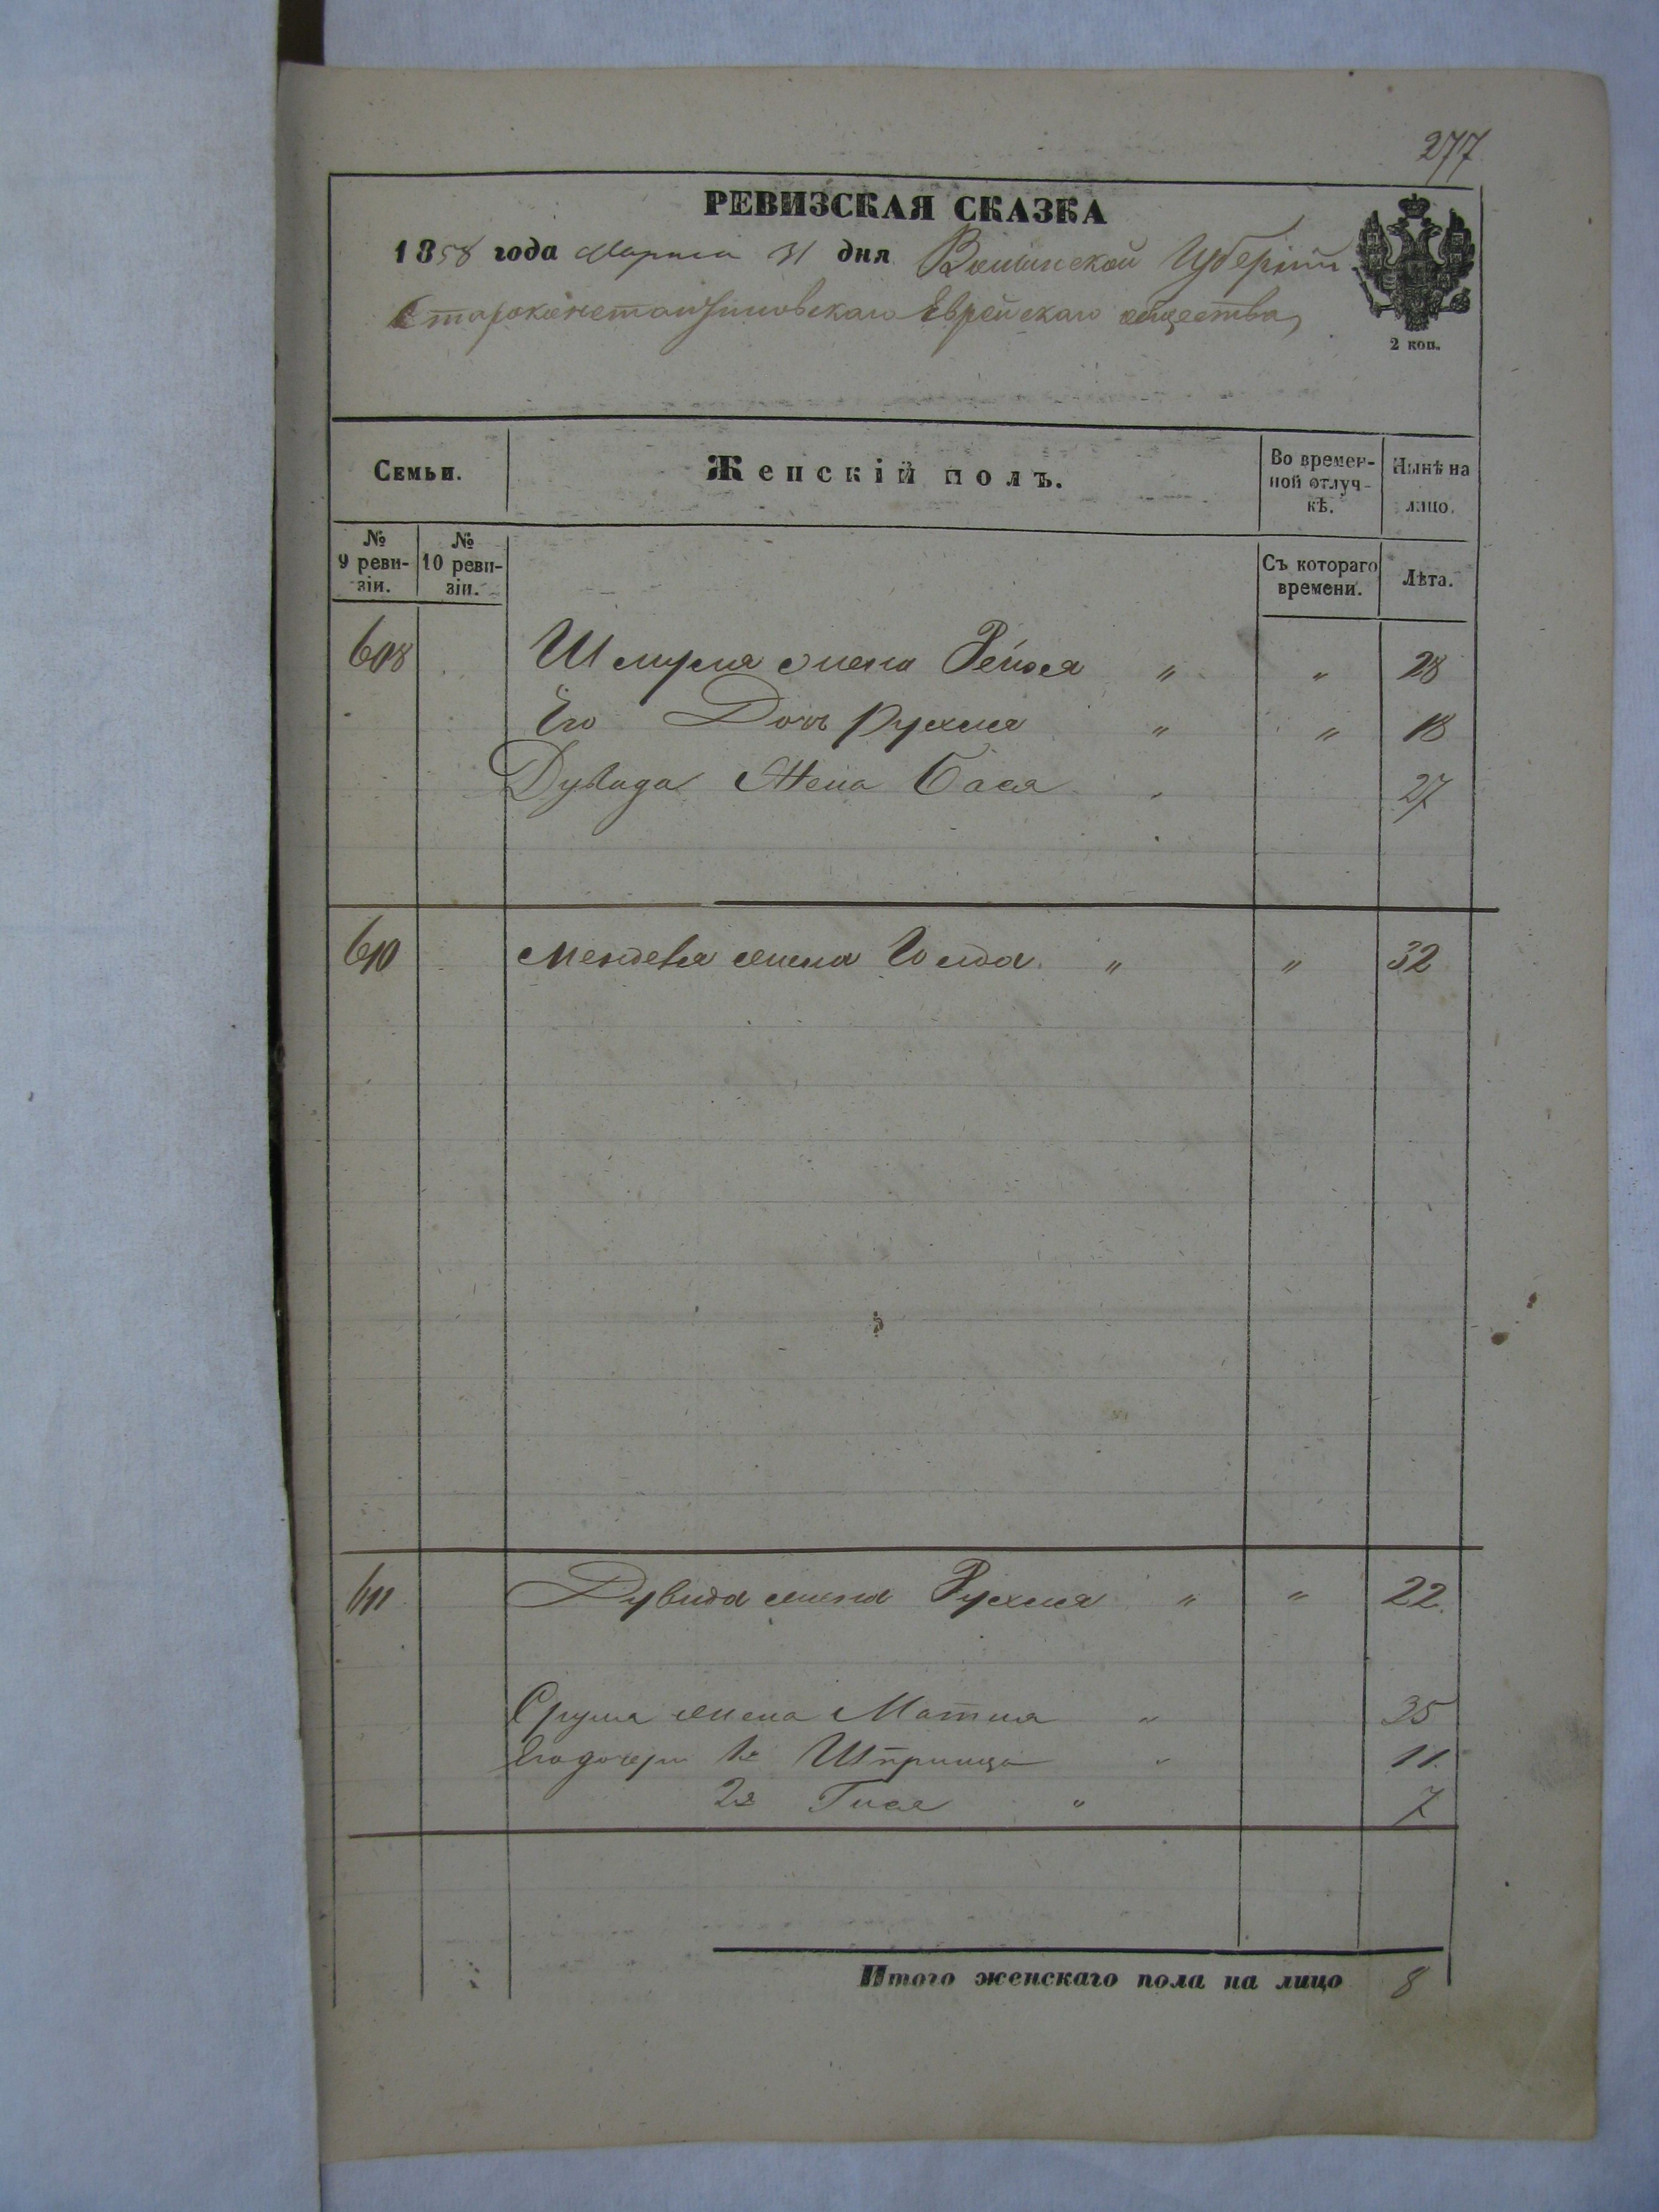 277
РЕВИЗСКАЯ СКАЗКА
1858 года Марта 31 дня Волынской Губерніи
Староконстантиновскаго Еврейскаго общества,
2 коп.
Семьи. Женскій полъ. Во времен-ной отлуч-кѣ. Нынѣ на лицо.
№ 9 реви-зіи. № 10 реви-зіи. Съ котораго времени. Лѣта.
608 Шмуля жена Рейзя " " 28
Его Дочь Рухля " " 18
Дувида Жена Бася 27
610 Менделя жена " " 32
611 Дувида жена Рухля " " 22.
Срула жена Матля " 35
Его дочери 1я Шпринца " 11.
2я Гися " 7
Итого женскаго пола на лицо 8